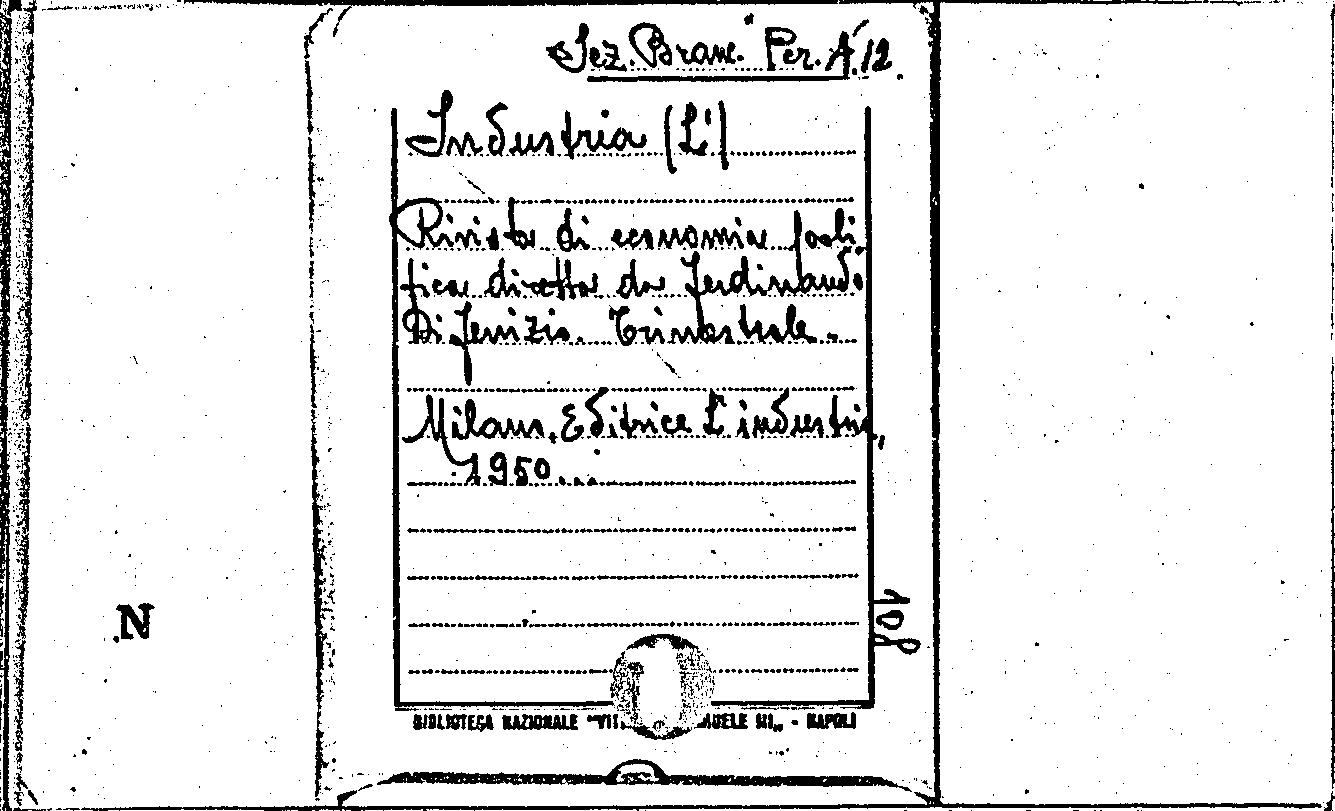 Sez. Branc. Per. A 12.
Industria (L')
Rivista di economia poli
tica diretta da Ferdinando
Di Fenizio. Trimestrale.
Milano, Editrice L'industria,
1950...
N
BIBLIOTECA NAZIONALE "VIT UELE III„ - NAPOLI